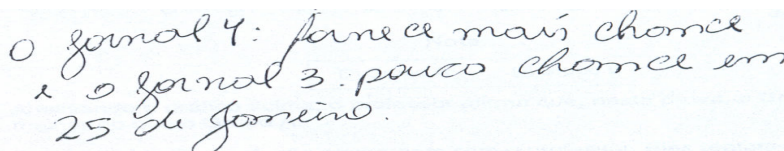 o jornal 4: fornece mais chance
e o jornal 3: pouco chance em
25 de Janeiro.